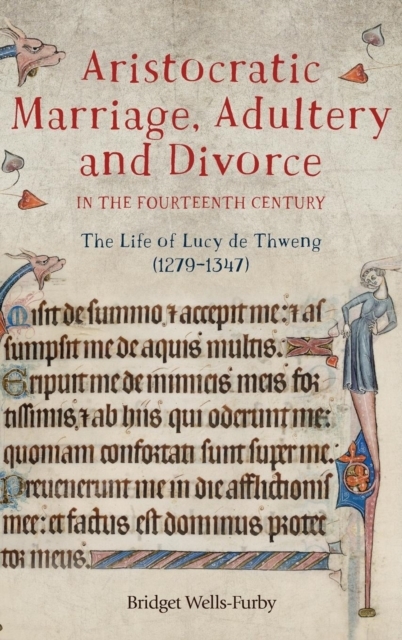 Aristocratic
Marriage, Adultery
and Divorce
IN THE FOURTEENTH CENTURY
The Life of Lucy de Thweng
(1279–1347)
Misit de summo, ⁊ accepit me: ⁊ as
sumpsit me de aquis multis.
Eripuit me de inimicis meis for
tissimis, ⁊ ab hiis qui oderunt me:
quoniam confortati sunt super me.
Preuenerunt me in die afflictionis
mee: et factus est dominus protec
tor meus.
Bridget Wells-Furby